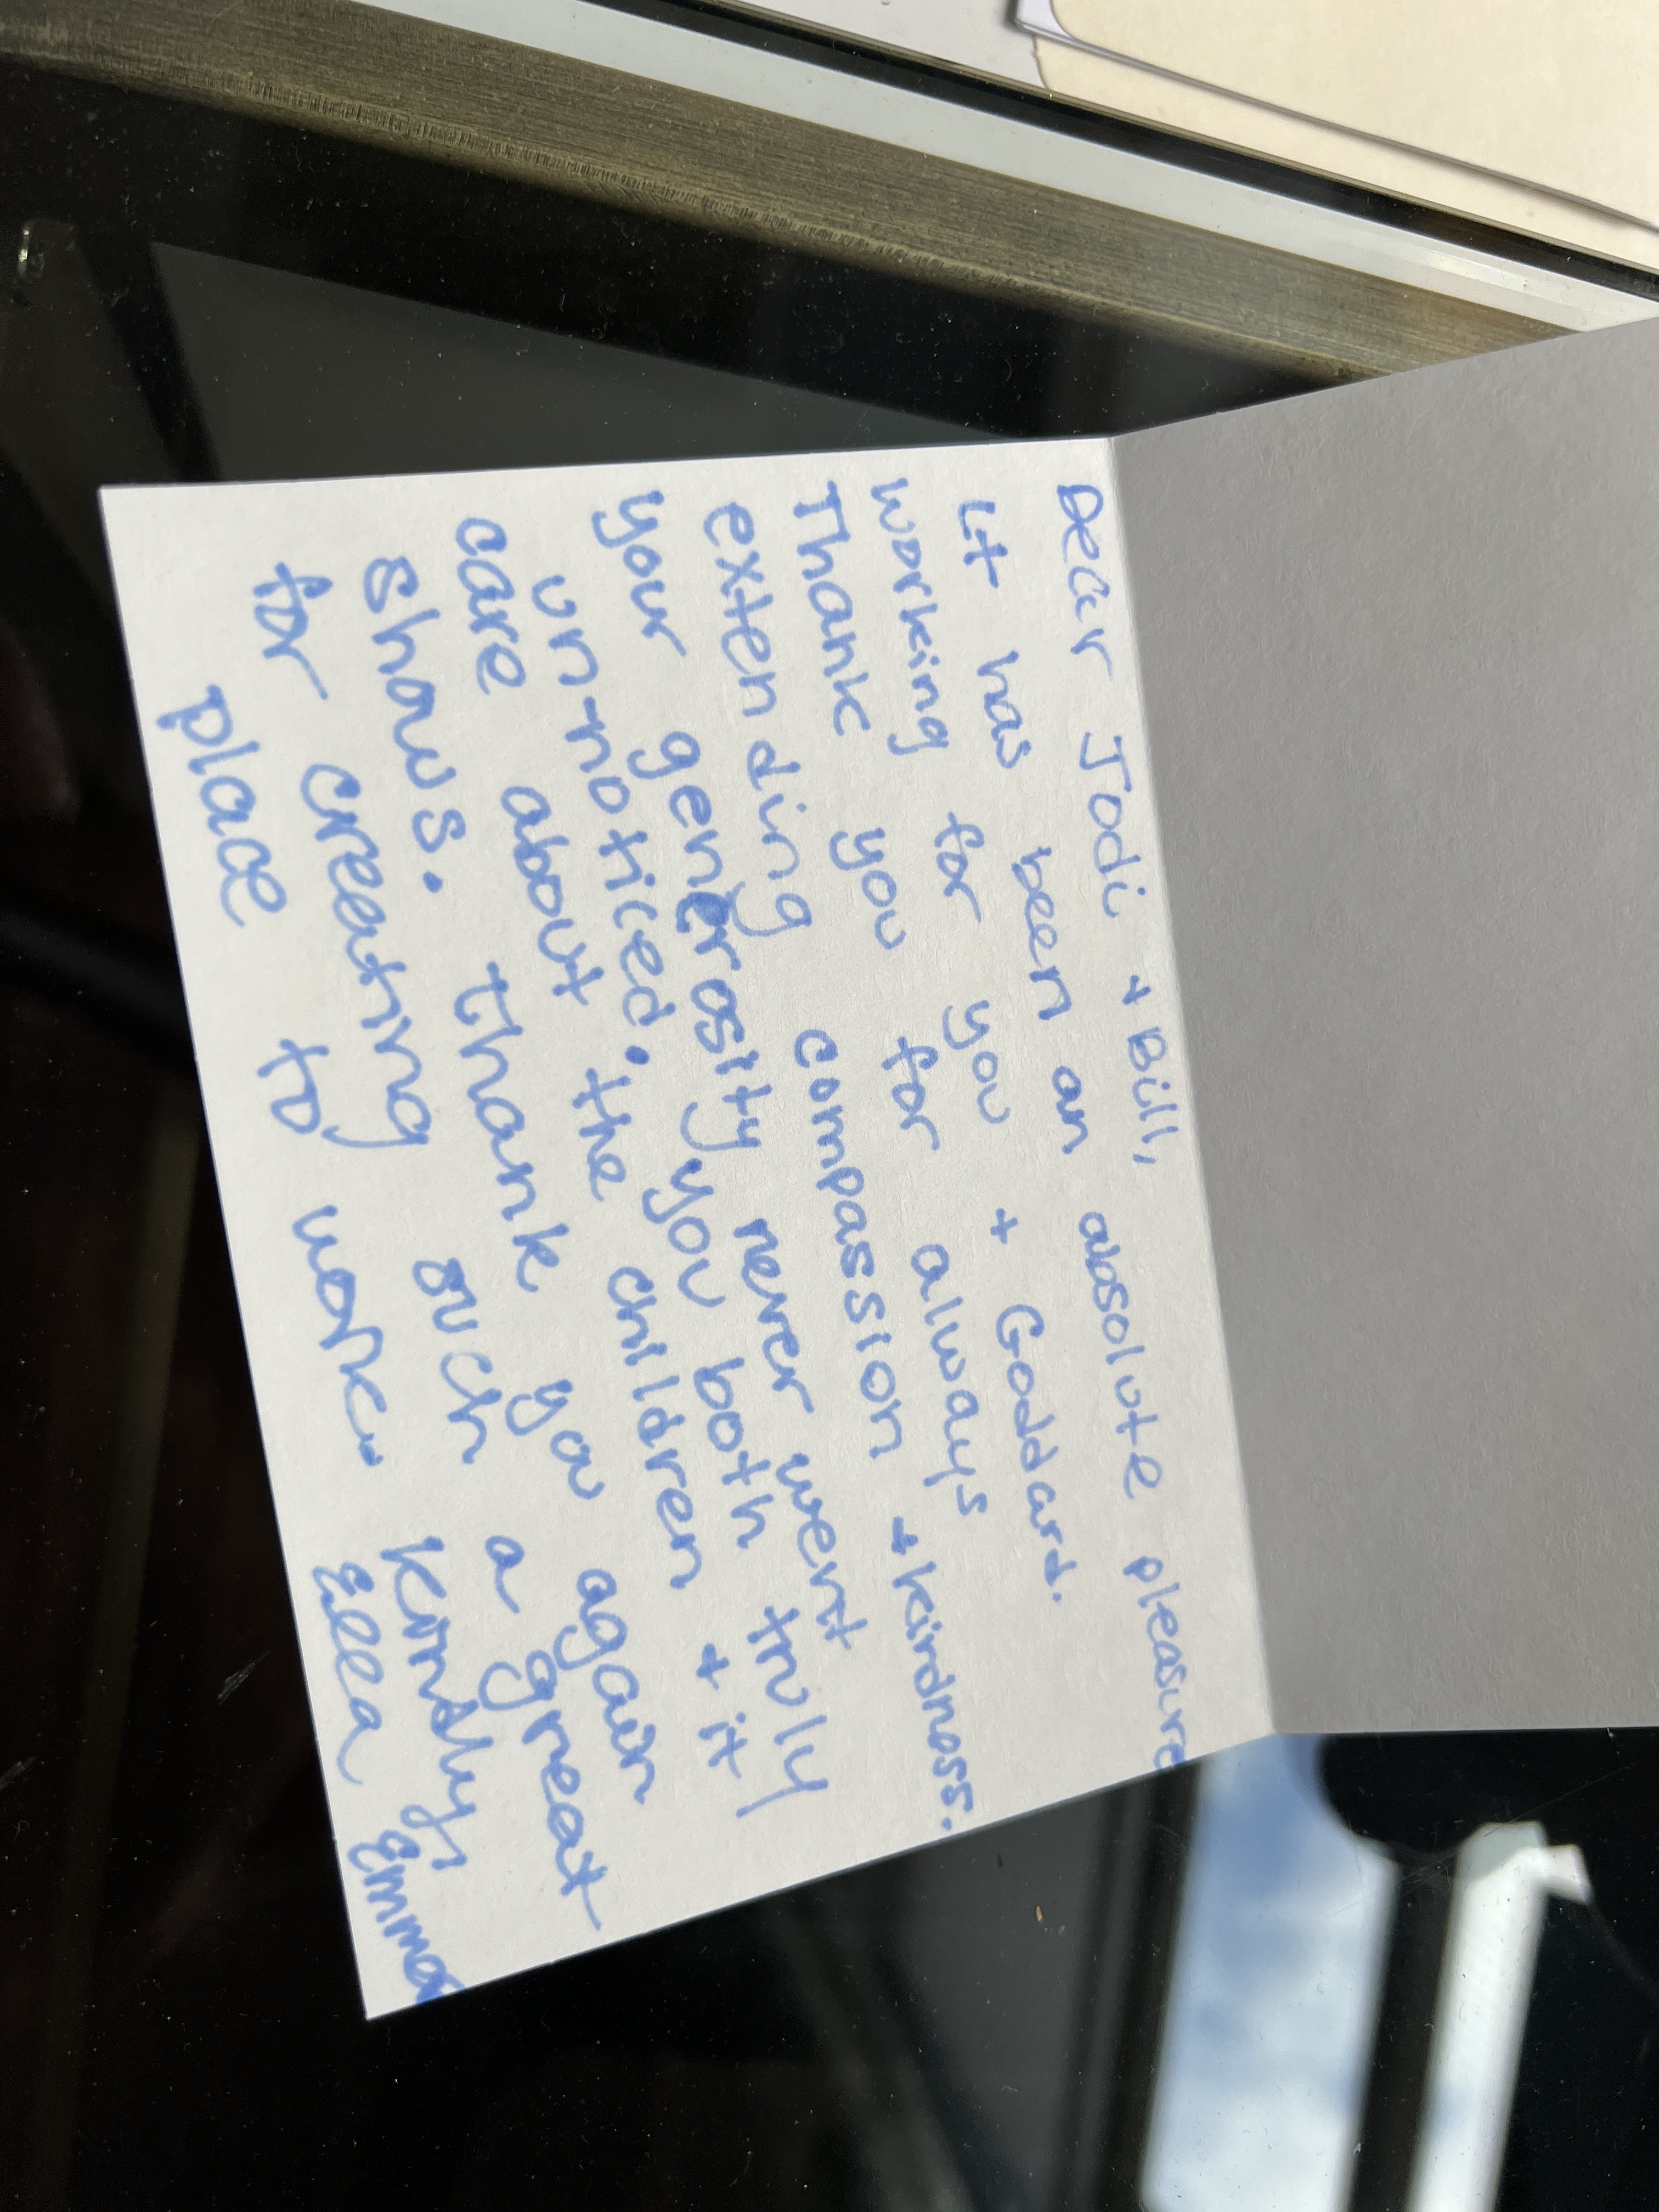 Dear Jodi + Bill,
It has been an absolute pleasure
working for you + Goddard.
Thank you for always
extending compassion + kindness.
your generosity never went
un-noticed. you both truly
care about the children + it
shows. Thank you again
for creating such a great
place to work. Kindly,
Ella Emma